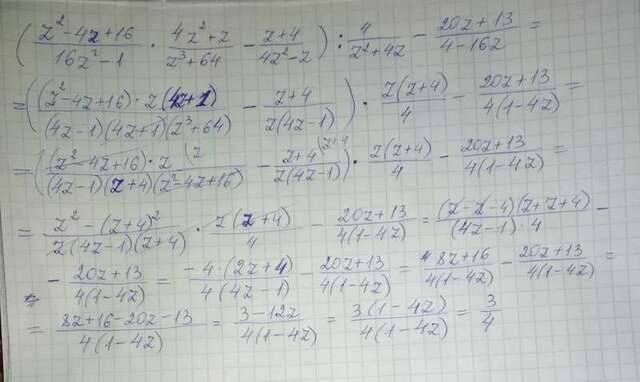 (z²-4z+16/16z²-1 · 4z²+z/z³+64 - z+4/4z²-z) : 4/z²+4z - 20z+13/4-16z =
=((z²-4z+16)·z(4z+1)/(4z-1)(4z+1)(z³+64) - z+4/z(4z-1)) · z(z+4)/4 - 20z+13/4(1-4z) =
=((z²-4z+16)·z (z/(4z-1)(z+4)(z²-4z+16) - z+4 (z+4/z(4z-1)) · z(z+4)/4 - 20z+13/4(1-4z) =
= z²-(z+4)²/z(4z-1)(z+4) · z(z+4)/4 - 20z+13/4(1-4z) = (z-z-4)(z+z+4)/(4z-1)·4 -
- 20z+13/4(1-4z) = -4·(2z+4)/4(4z-1) - 20z+13/4(1-4z) = 8z+16/4(1-4z) - 20z+13/4(1-4z) =
= 8z+16-20z-13/4(1-4z) = 3-12z/4(1-4z) = 3(1-4z)/4(1-4z) = 3/4